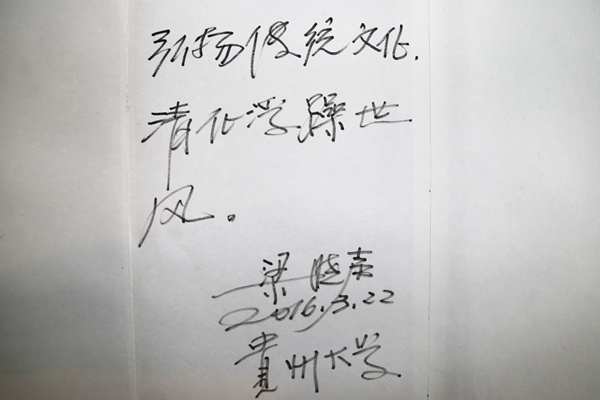 弘扬传统文化.
清化浮躁世
风。
梁晓声
2016.3.22
貴州大学